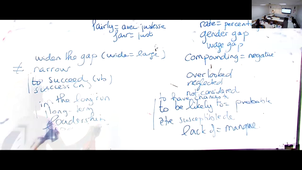 fairly = avec justesse
fair = just
widen the gap (wide = large)
≠ narrow
to succeed (vb)
success (n)
in the
long way
leadership
rate = percent
gender gap
wage gap
Compounding = negative
overlooked
neglected
not considered
to have
to be likely to = probable
susceptible de
lack of = manque